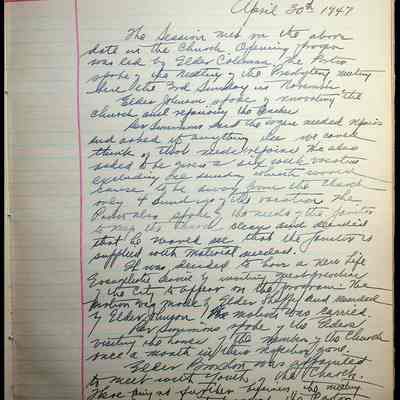 April 30th 1947
The Session met on the above
date in the Church. Opening prayer
was led by Elder Coleman, the Pastor
spoke of the meeting of the Presbytery meeting
here the 3rd Sunday in November.
Elder Johnson spoke of the
church and repairing the
Rev Simmons said the organ needed repairs
and asked if anything else we could
think of that needs repairs. He also
asked to be given a six week vacation
excluding one Sunday which would
cause to be away from the church
only 4 Sundays of the vacation. The
Pastor also spoke of the needs of the janitor
to keep the Church clean and decided
that he would see that the janitor is
supplied with material needed.
It was decided to have a New Life
Evangelistic service of inviting
of the City to appear on the program. The
motion was made by Elder and seconded
by Elder Johnson. The motion was carried.
Rev Simmons spoke of the Elders
visiting the homes of the members of the Church
once a month in their zone.
Elder was appointed
to meet with Youth of the Church.
There being no further business, the meeting
the Pastor